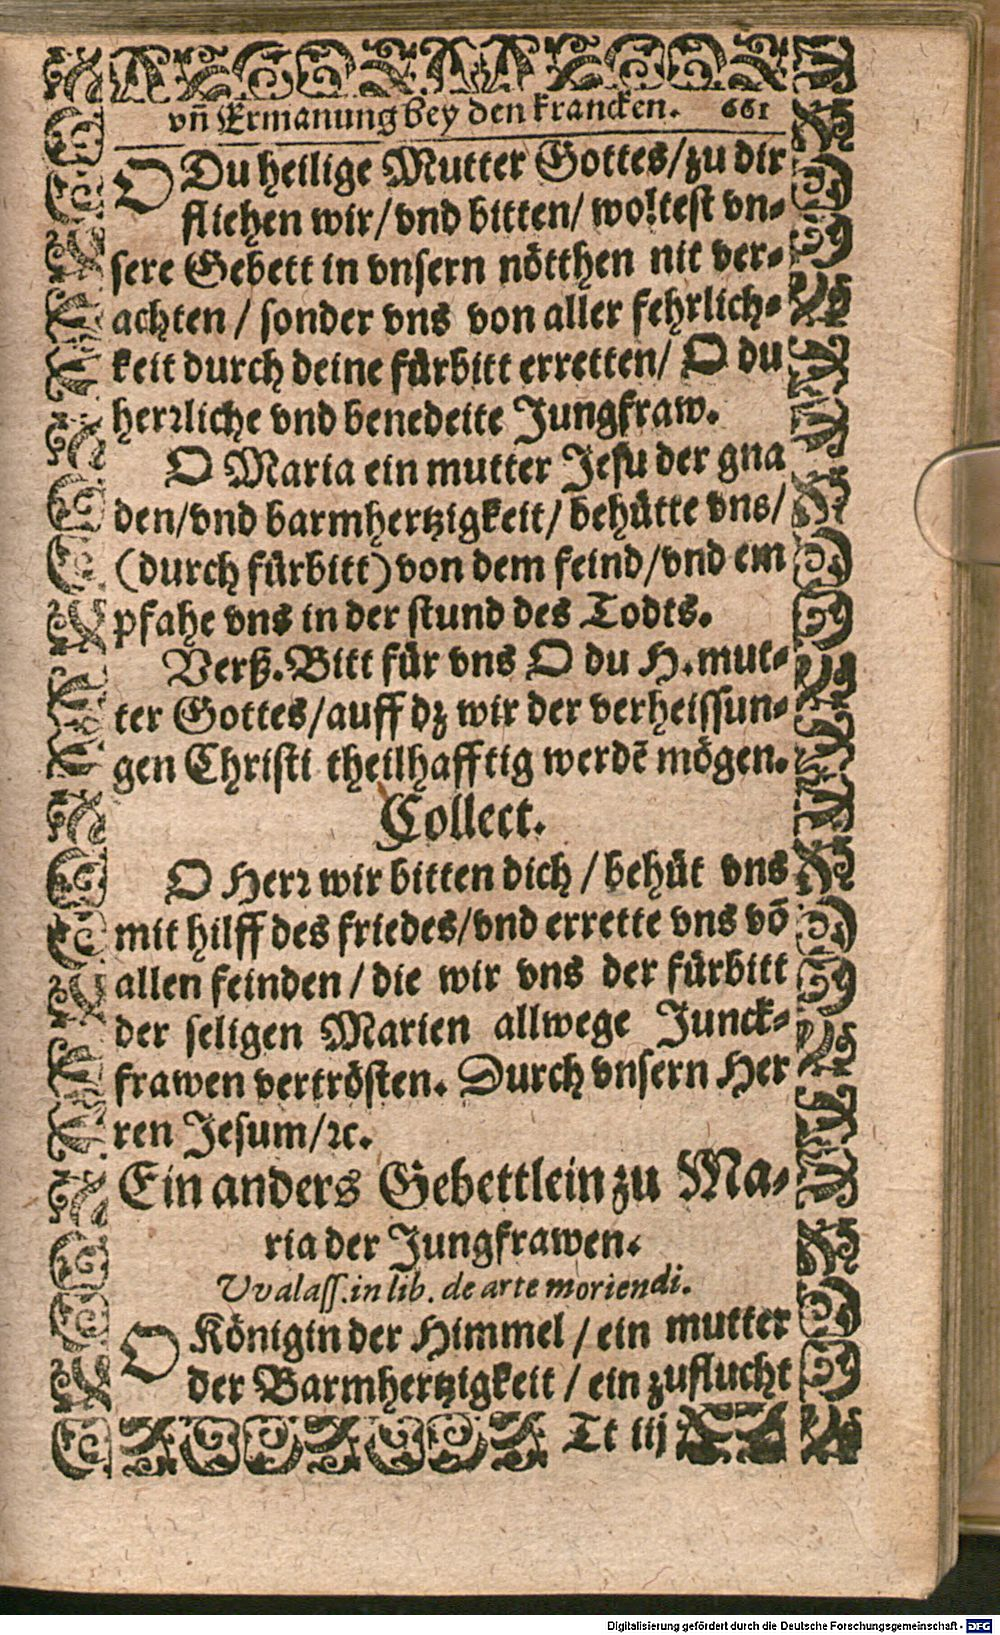 vñ Ermanung bey den krancken. 661
O Du heilige Mutter Gottes/zu dir
fliehen wir/vnd bitten/woltest vn-
sere Gebett in vnsern nötthen nit ver-
achten/sonder vns von aller fehrlich-
keit durch deine fürbitt erretten/O du
herrliche vnd benedeite Jungfraw.
O Maria ein mutter Jesu der gna
den/vnd barmhertzigkeit/behütte vns/
(durch fürbitt) von dem feind/vnd em
pfahe vns in der stund des Todts.
Verß. Bitt für vns O du H. mut-
ter Gottes/auff dz wir der verheissun-
gen Christi theilhafftig werdẽ mögen.
Collect.
O Herr wir bitten dich/behüt vns
mit hilff des friedes/vnd errette vns võ
allen feinden/die wir vns der fürbitt
der seligen Marien allwege Junck-
frawen vertrösten. Durch vnsern Her
ren Jesum/ꝛc.
Ein anders Gebettlein zu Ma-
ria der Jungfrawen.
Vvalass. in lib. de arte moriendi.
O Königin der Himmel/ein mutter
der Barmhertzigkeit/ein zuflucht
Tt iij
Digitalisierung gefördert durch die Deutsche Forschungsgemeinschaft - DFG